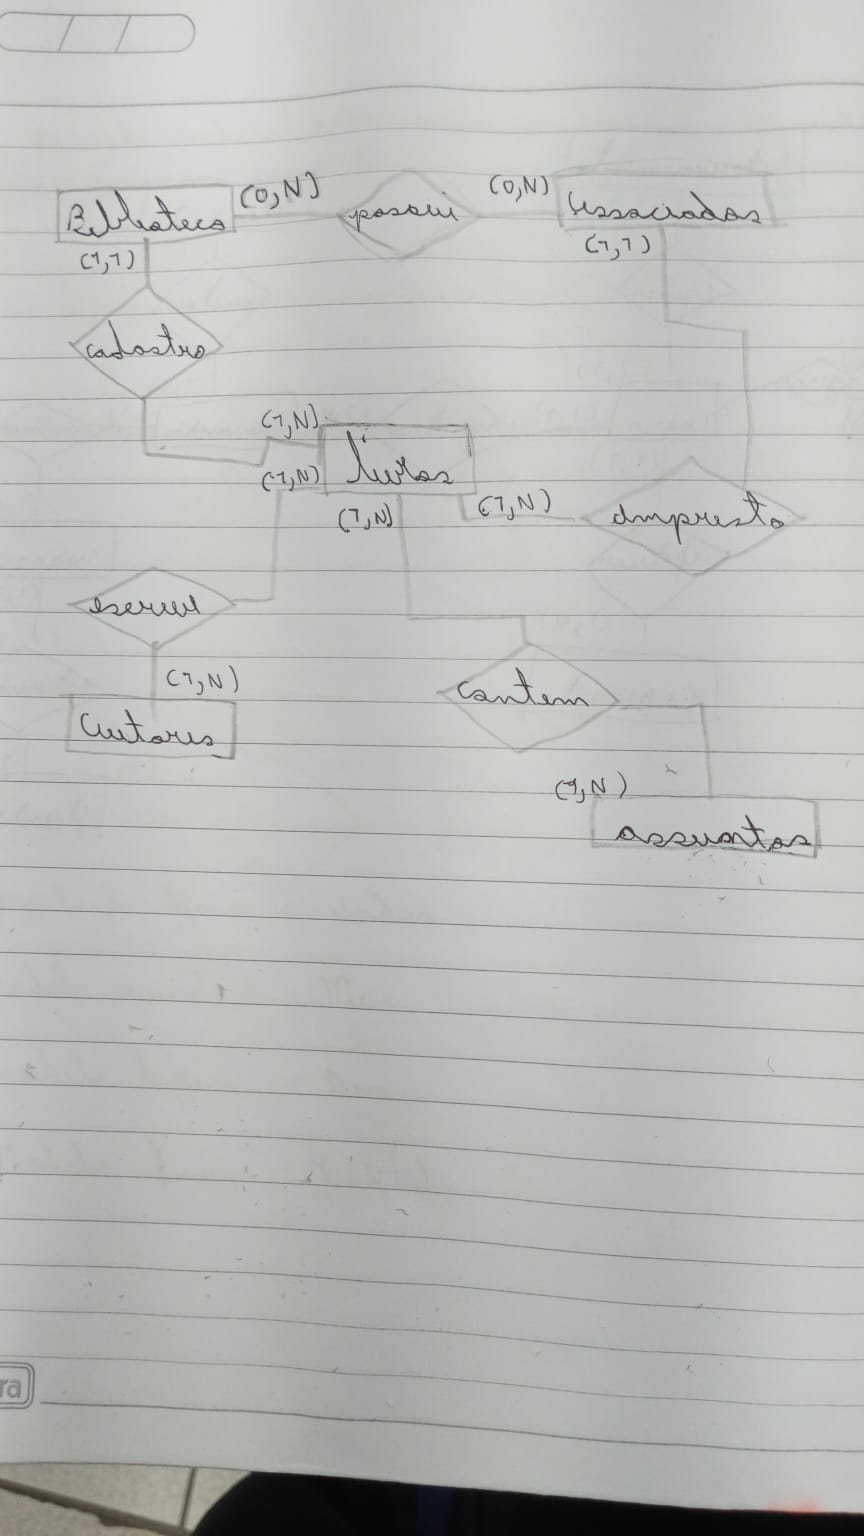 Biblioteca (0,N) possui (0,N) Associados
(1,1) (1,1)
cadastro
(1,N)
(1,N) livros
(1,N) (1,N) Empresta
escreve
(1,N) contem
Autores
(1,N)
assuntos
ra